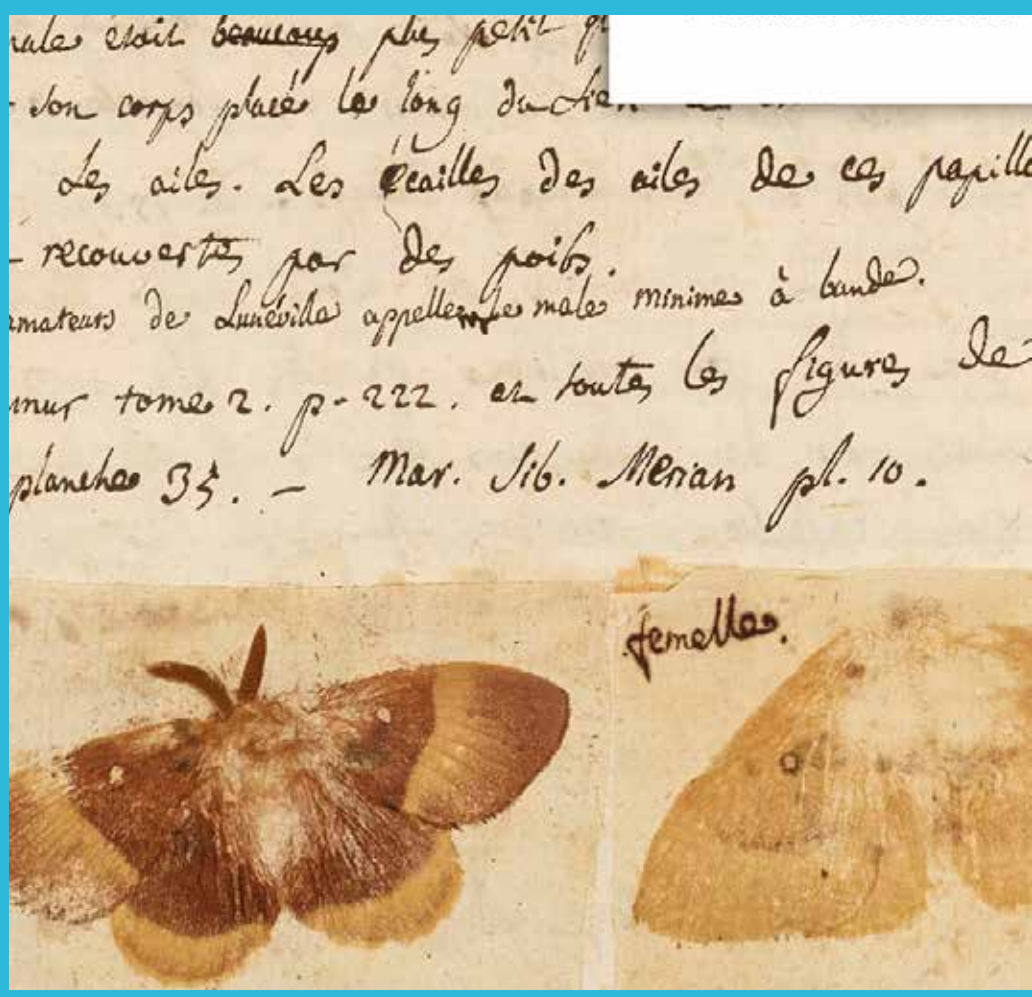 male était beaucoup plus petit
son corps placé le long du sien
les ailes. Les écailles des ailes de ces papill
recouvertes par des poils.
amateurs de Lunéville appellent le male minime à bande.
mur tome 2. p. 222. et toutes les figures de
planche 35. – Mar. Sib. Merian pl. 10.
femelle.